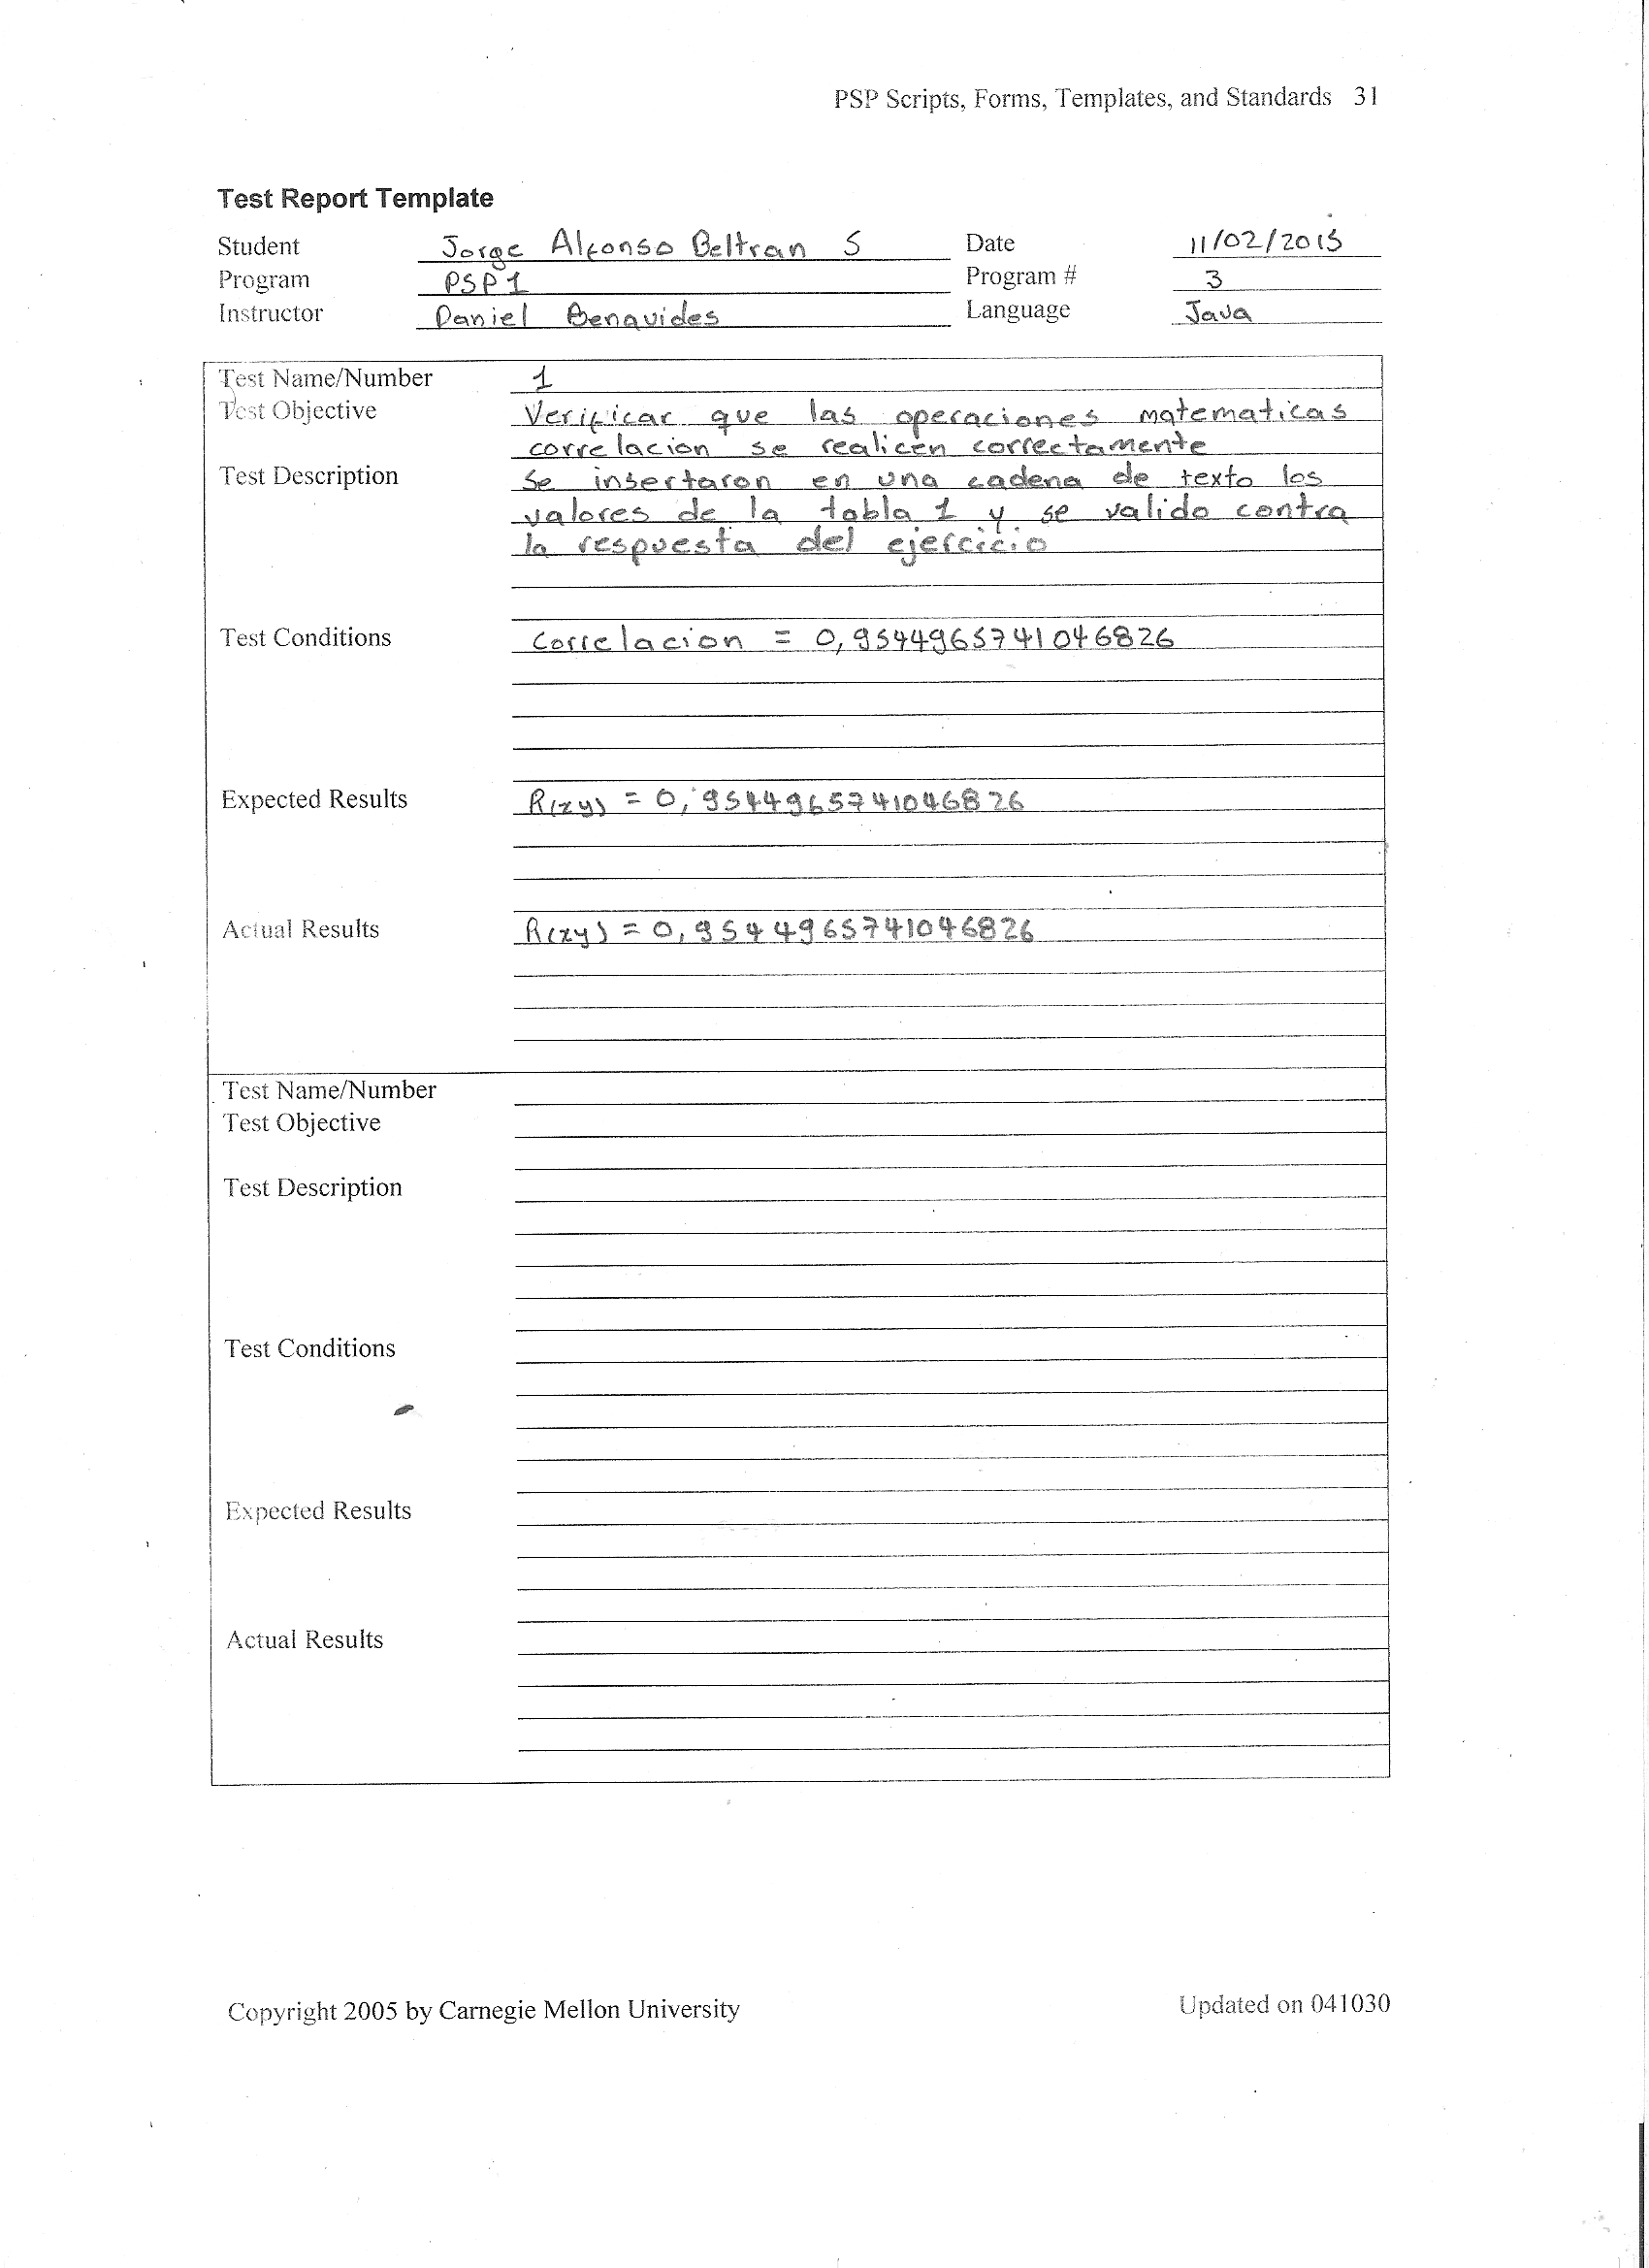 PSP Scripts, Forms, Templates, and Standards 31
Test Report Template
Student Jorge Alfonso Beltran S Date 11/02/2015
Program PSP1 Program # 3
Instructor Daniel Benavides Language Java
Test Name/Number 1
Test Objective Verificar que las operaciones matematicas
correlacion se realicen correctamente
Test Description Se insertaron en una cadena de texto los
valores de la tabla 1 y se valido contra
la respuesta del ejercicio
Test Conditions Correlacion = 0,9544965741046826
Expected Results R(xy) = 0,9544965741046826
Actual Results R(xy) = 0,9544965741046826
Test Name/Number
Test Objective
Test Description
Test Conditions
Expected Results
Actual Results
Copyright 2005 by Carnegie Mellon University Updated on 041030